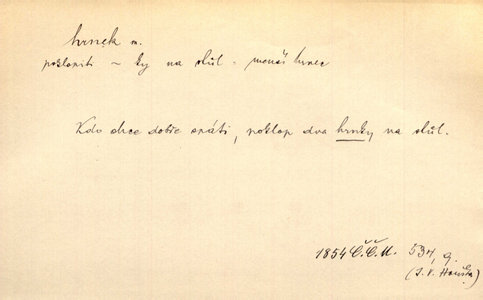 hrnek m.
poklopiti ~ ky na stůl - menší hrnec
Kdo chce dobře spáti, poklop dva hrnky na stůl.
1854 Č.Č.M. 534, 9.
(J. V. Houška)